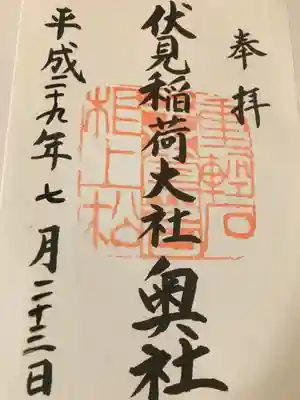 奉拝
伏見稲荷大社 奥社
平成二十九年七月二十三日
重軽石
根上松